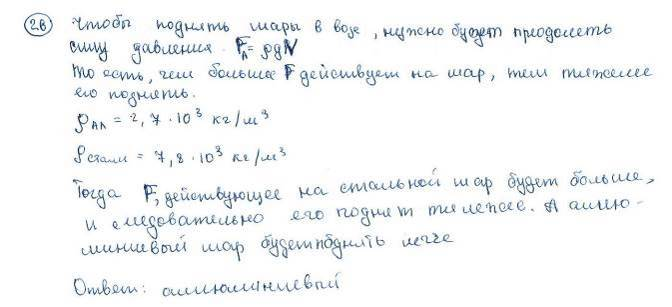 2в) Чтобы поднять шары в воде, нужно будет преодолеть
силу давления. Fд = ρgV
То есть, чем больше F действует на шар, тем тяжелее
его поднять.
ρал = 2,7·10³ кг/м³
ρстали = 7,8·10³ кг/м³
Тогда F, действующее на стальной шар будет больше,
и следовательно его поднят тяжелее. А аллю-
миниевый шар будет поднять легче
Ответ: алюминиевый